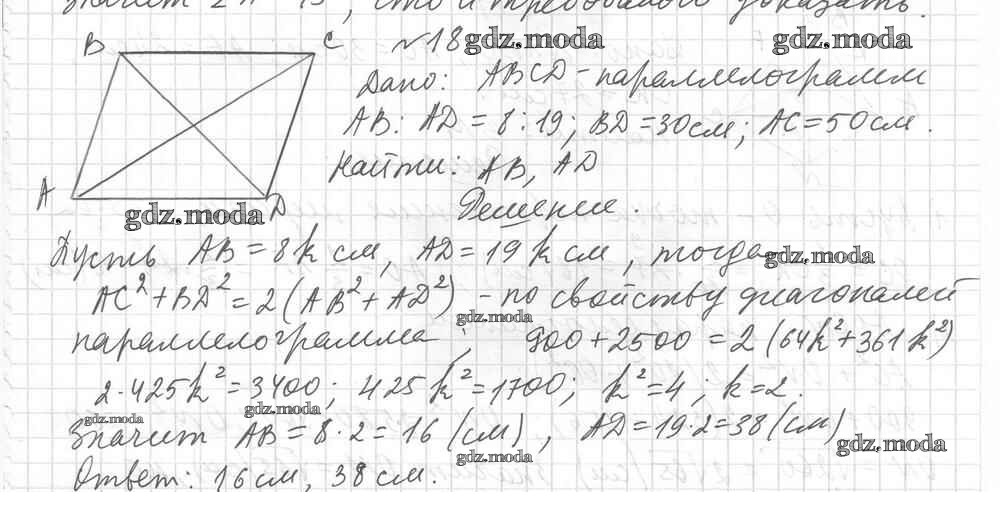 значит 2 , что и требовалось доказать.
B C №18 gdz.moda gdz.moda
Дано: ABCD - параллелограмм
AB : AD = 8 : 19; BD = 30 см; AC = 50 см.
Найти: AB, AD
A D
gdz.moda
Решение.
Пусть AB = 8k см, AD = 19k см, тогда gdz.moda
AC² + BD² = 2(AB² + AD²) - по свойству диагоналей
gdz.moda
параллелограмма; 900 + 2500 = 2(64k² + 361k²)
2·425k² = 3400; 425k² = 1700; k² = 4; k = 2.
gdz.moda gdz.moda
Значит AB = 8·2 = 16 (см), AD = 19·2 = 38 (см)
gdz.moda gdz.moda
Ответ: 16 см, 38 см.